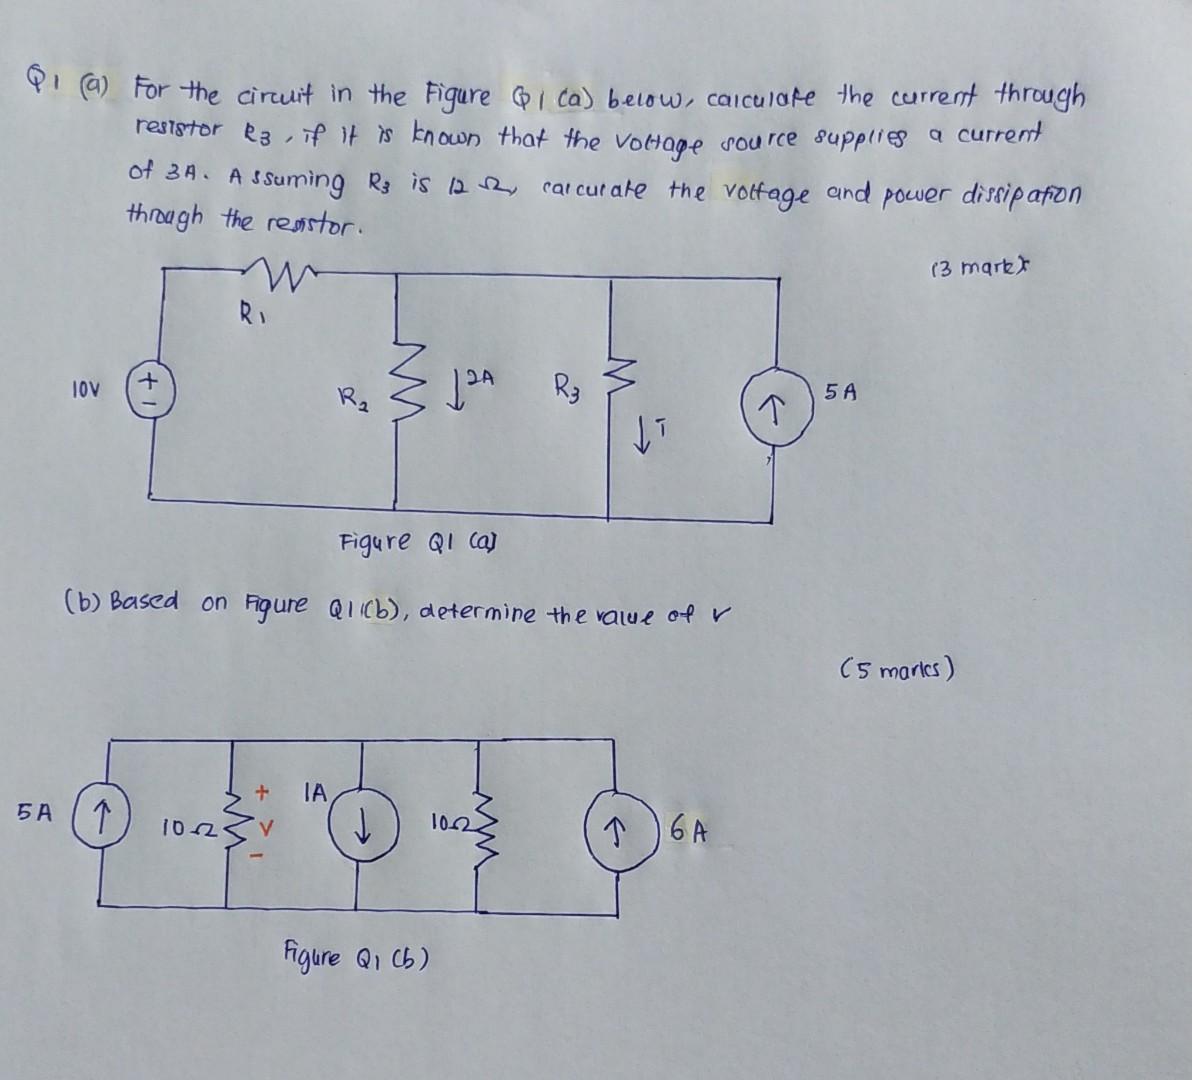 Q1 (a) For the circuit in the Figure Q1 (a) below, calculate the current through
resistor R3, if it is known that the voltage source supplies a current
of 3A. Assuming R3 is 12 Ω, calculate the voltage and power dissipation
through the resistor.
(3 marks)
R1
10V
+
R2
2A
R3
I
5A
Figure Q1 (a)
(b) Based on Figure Q1(b), determine the value of v
(5 marks)
5A
10Ω
+
V
-
1A
10Ω
6A
Figure Q1 (b)